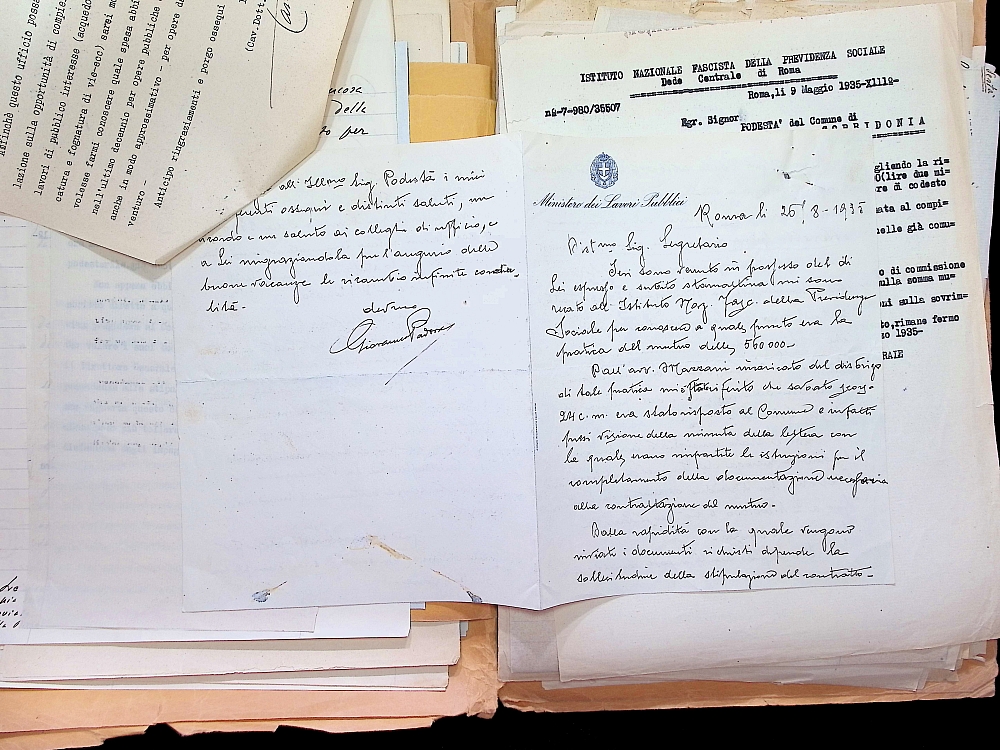 Affinchè questo ufficio possa
lazione sulla opportunità di compie
lavori di pubblico interesse (acquedo
catura e fognatura di vie-ecc) sarei mo
volesse farmi conoscere quale spesa abbi
nell'ultimo decennio per opere pubbliche
anche in modo approssimativo - per opere d
venturo -
Anticipo ringraziamenti e porgo ossequi
(Cav.Dott.
della
per
all'Illmo Sig. Podestà i miei
ossequi e distinti saluti, un
ricordo e un saluto ai colleghi di ufficio, e
a Lei ringraziandola per l'augurio delle
buone vacanze le ricambio infinite cordia-
lità.
dev.mo
Giovanni
ISTITUTO NAZIONALE FASCISTA DELLA PREVIDENZA SOCIALE
Dede Centrale di Roma
Roma, li 9 Maggio 1935-XIIIº-
nº-7-980/35507
Egr. Signor
PODESTA' del Comune di
CORRIDONIA
Ministero dei Lavori Pubblici
Roma li 26/8-1935
Dist.mo Sig. Segretario
Ieri sono venuto in possesso del di
Lei espresso e subito stamattina mi sono
recato all'Istituto Naz. Fasc. della Previdenza
Sociale per conoscere a quale punto era la
pratica del mutuo delle 560000-
Dall'avv. Mazzani incaricato del disbrigo
di tale pratica mi riferito che sabato scorso
24 c.m. era stato risposto al Comune e infatti
presi visione della minuta della lettera con
la quale erano impartite le istruzioni per il
completamento della documentazione necessaria
alla contrattazione del mutuo-
Dalla rapidità con la quale vengono
inviati i documenti richiesti dipende la
sollecitudine della stipulazione del contratto-
gliendo la ri=
0(lire due mi=
re di codesto
ata al compi=
elle già comu=
o di commissione
ulla somma mu=
ui sulla sovrim=
to,rimane fermo
o 1935-
RAIE